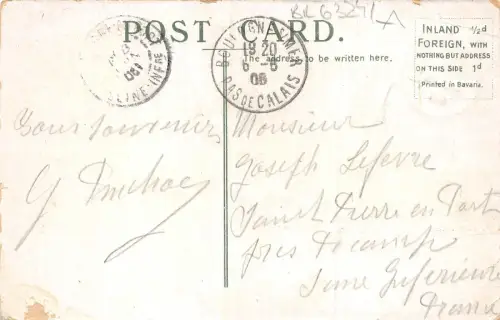 BK 63241
POST CARD.
The address to be written here.
INLAND ½d
FOREIGN, WITH
NOTHING BUT ADDRESS
ON THIS SIDE 1d
Printed in Bavaria.
19 20
6 - 6
06
PAS DE CALAIS
SEINE-INFRE
Bon souvenir
G.
Monsieur
Joseph Lefevre
Saint Pierre en Port
près Fecamp
Seine Inferieure
France